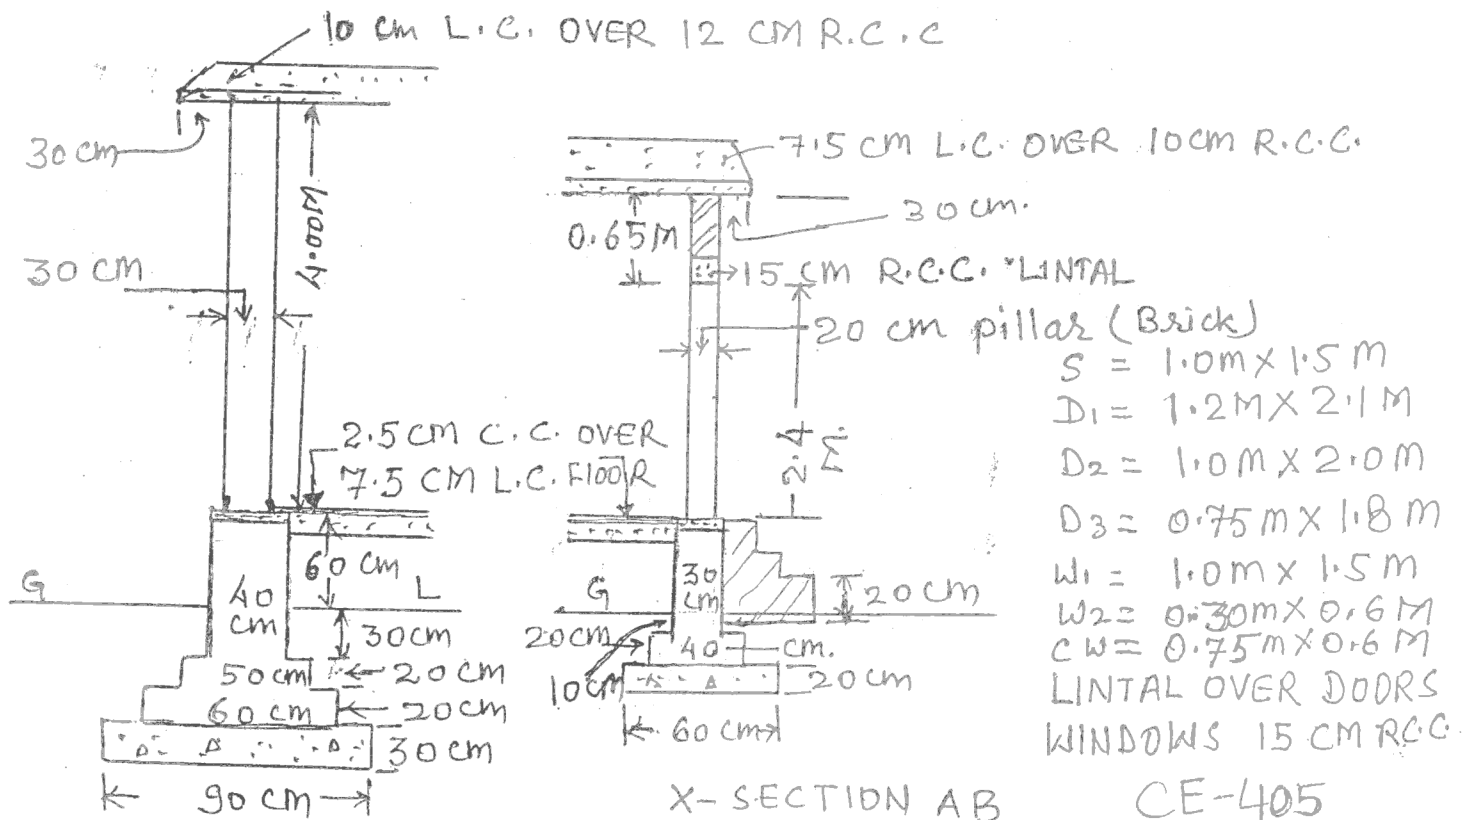 10 cm L.C. OVER 12 CM R.C.C
30 cm
4.00M
30 CM
2.5 CM C.C. OVER
7.5 CM L.C. FlooR
60 cm
G
L
40
cm
30cm
50cm
20cm
60cm
20cm
30cm
90 cm
7.5 cm L.C. OVER 10cm R.C.C.
30 cm.
0.65M
15 cm R.C.C. LINTAL
20 cm pillar (Brick)
2.4
M.
G
30
cm
20cm
20cm
40 cm.
10cm
20cm
60cm
X-SECTION AB
S = 1.0m X 1.5 M
D1 = 1.2M X 2.1M
D2 = 1.0m X 2.0M
D3 = 0.75m X 1.8M
W1 = 1.0m X 1.5M
W2 = 0.30m X 0.6M
CW = 0.75m X 0.6M
LINTAL OVER DOORS
WINDOWS 15 CM RCC.
CE-405